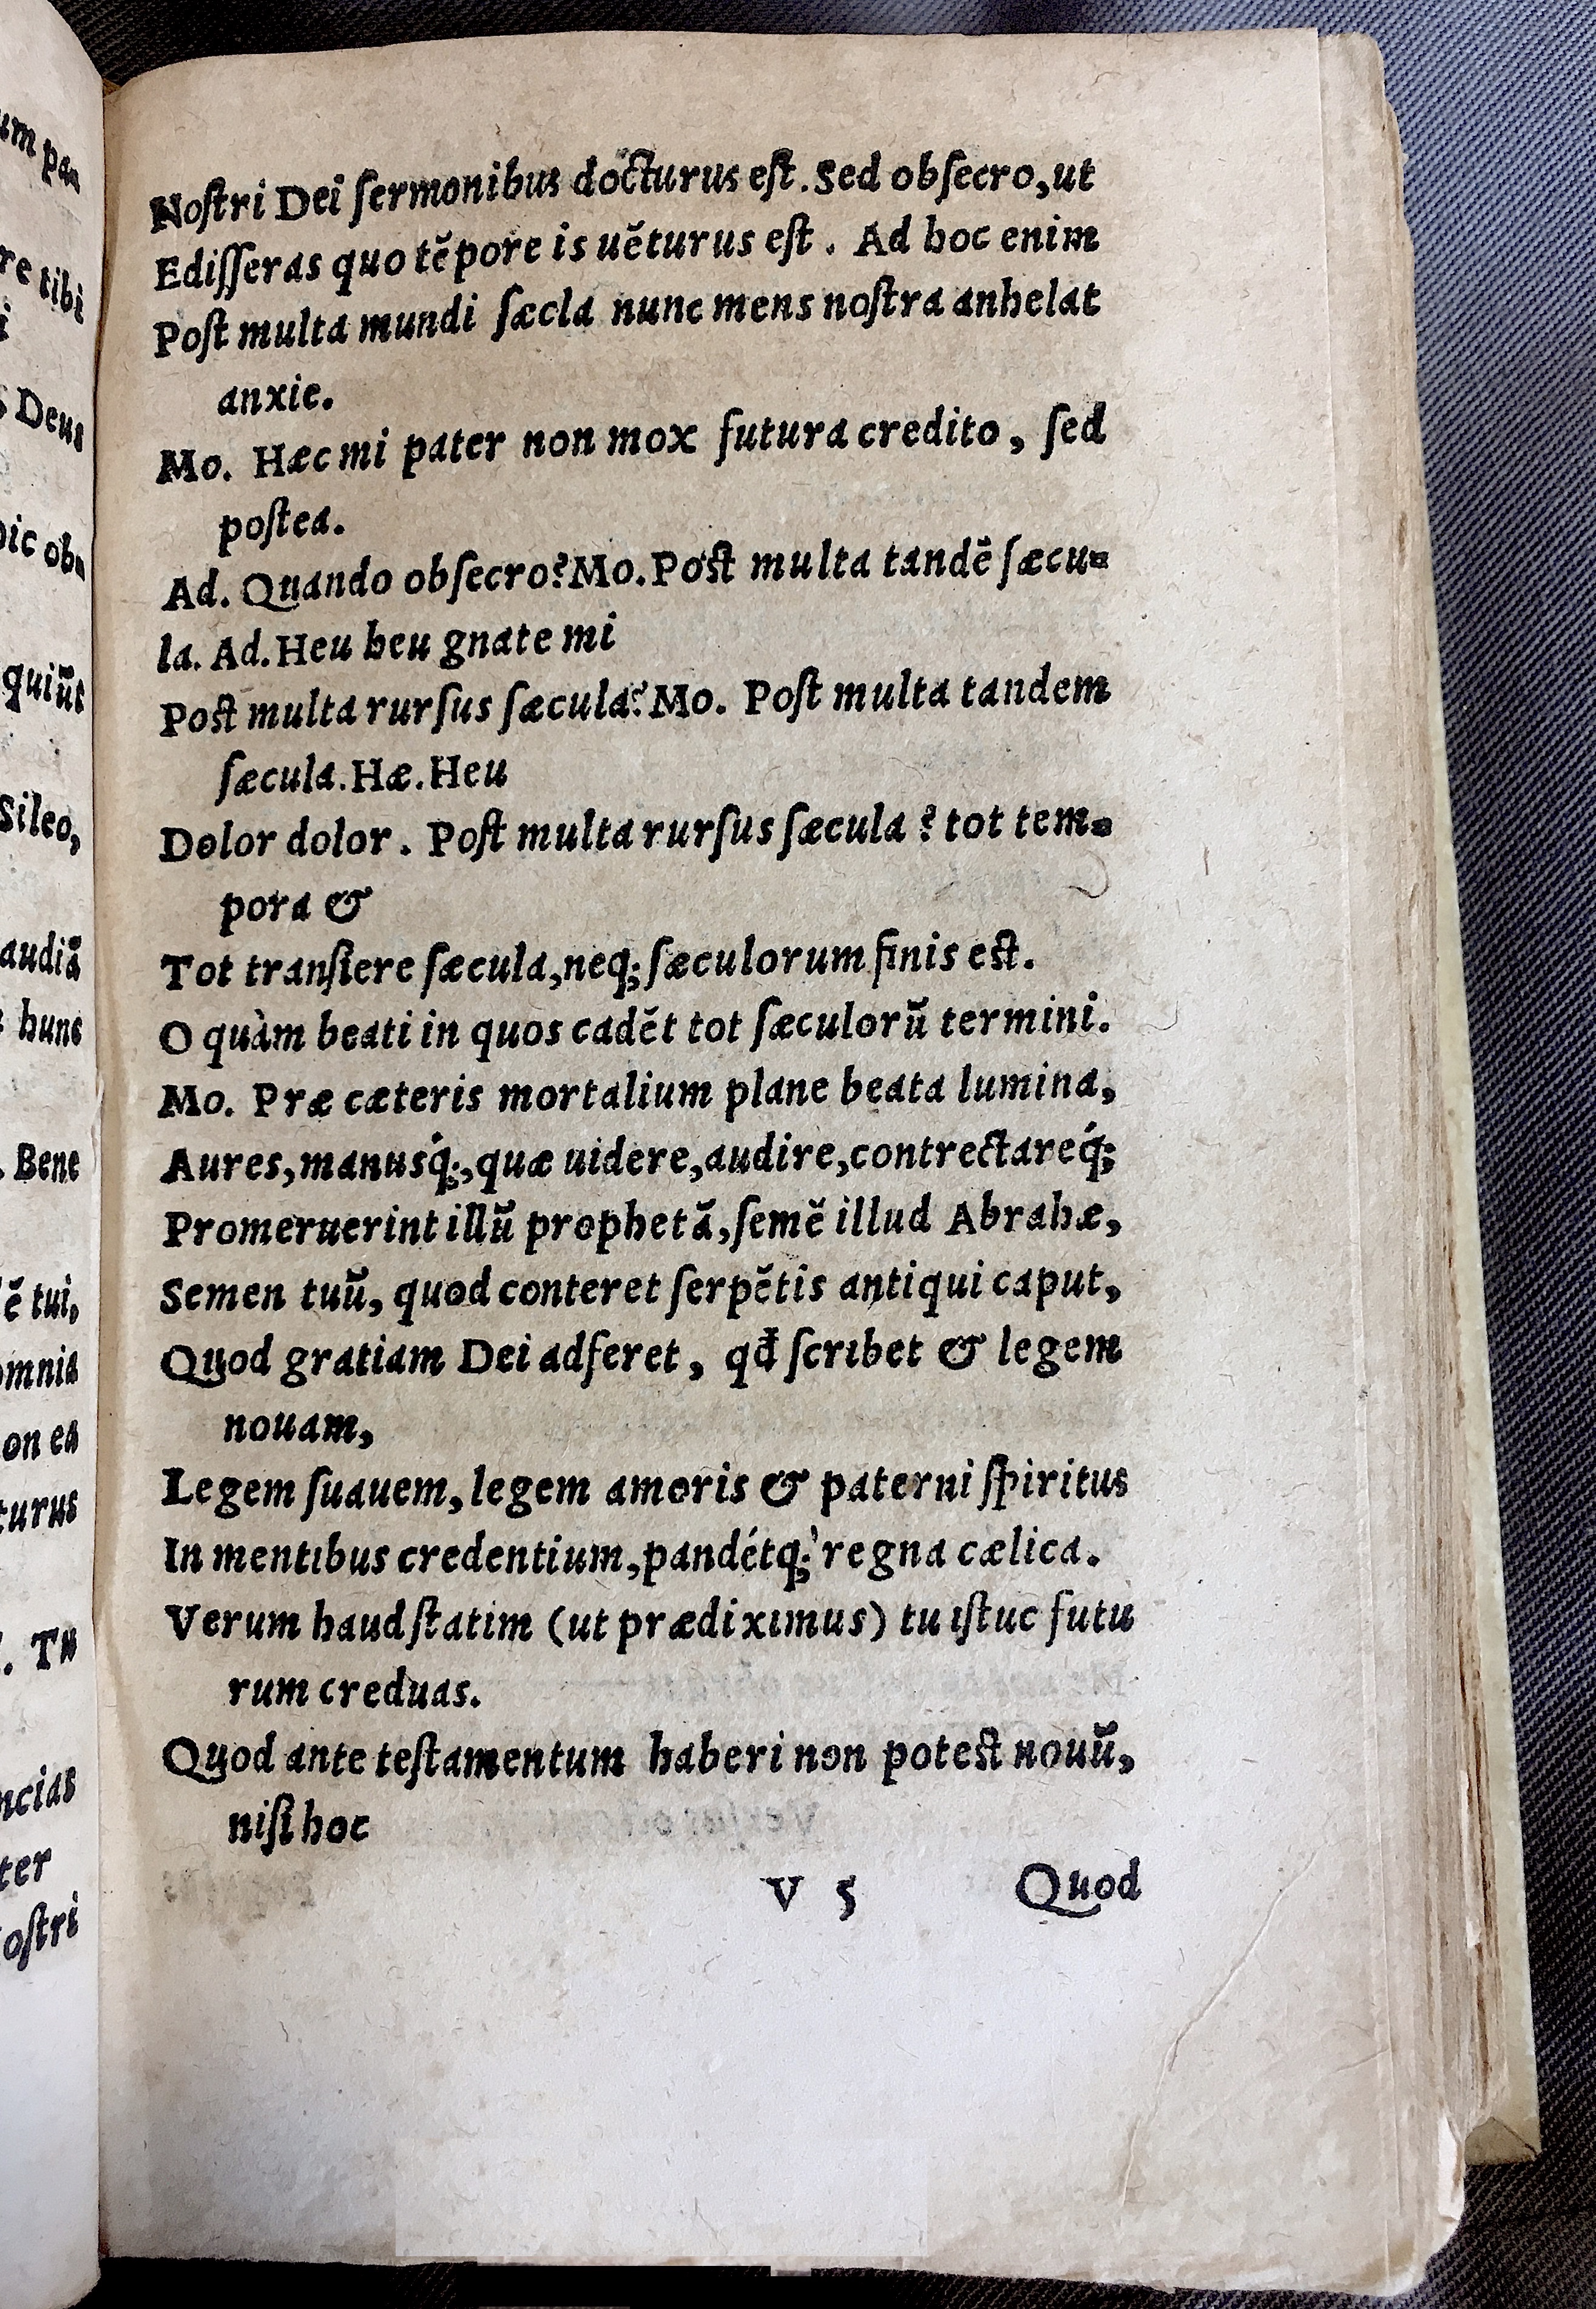 Noſtri Dei ſermonibus docturus eſt. Sed obſecro, ut
Ediſſeras quo tẽpore is uẽturus eſt. Ad hoc enim
Poſt multa mundi ſæcla nunc mens noſtra anhelat
anxie.
Mo. Hæc mi pater non mox futura credito, ſed
poſtea.
Ad. Quando obſecro? Mo. Poſt multa tandẽ ſæcu-
la. Ad. Heu heu gnate mi
Poſt multa rurſus ſæcula? Mo. Poſt multa tandem
ſæcula. Hæ. Heu
Dolor dolor. Poſt multa rurſus ſæcula? tot tem-
pora &
Tot tranſiere ſæcula, neq; ſæculorum finis eſt.
O quàm beati in quos cadẽt tot ſæculorũ termini.
Mo. Præ cæteris mortalium plane beata lumina,
Aures, manusq́;, quæ uidere, audire, contrectareq́;
Promeruerint illũ prophetã, ſemẽ illud Abrahæ,
Semen tuũ, quod conteret ſerpẽtis antiqui caput,
Quod gratiam Dei adferet, qđ ſcribet & legem
nouam,
Legem ſuauem, legem amoris & paterni ſpiritus
In mentibus credentium, pandétq; regna cælica.
Verum haud ſtatim (ut prædiximus) tu iſtuc futu
rum creduas.
Quod ante teſtamentum haberi non poteſt nouũ,
niſi hoc
V 5 Quod
um pan
re tibi
i
s Deus
hic obu
quiũt
Sileo,
audiã
hunc
. Bene
ẽ tui,
omnia
on ea
turus
. Tu
ncias
ter
oſtri